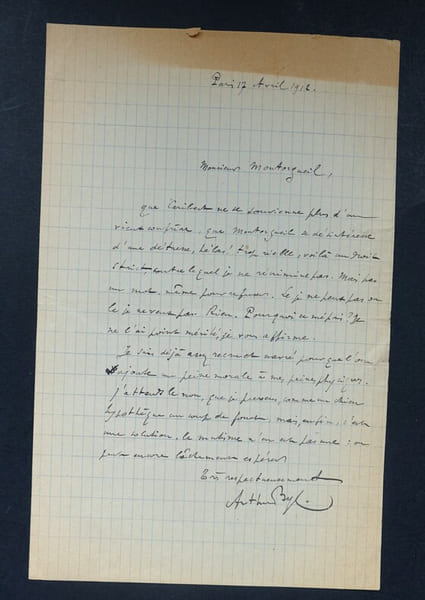 Paris 17 Avril 1912.
Monsieur Montorgueil,
que l'écrivain ne se souvienne plus d'un
vieux confrère, que Montorgueil se désintéresse
d'une détresse, hélas! trop réelle, voilà un droit
strict, contre lequel je ne récrimine pas. Mais pas
un mot, même pour refuser. Le je ne peux pas ou
le je ne veux pas. Rien. Pourquoi ce mépris? Je
ne l'ai point mérité, je vous affirme.
Je suis déjà assez navré pour que l'on
ajoute une peine morale à mes peines physiques.
J'attends le non, que je prévois, comme un chien
un coup de fouet, mais, enfin, c'est
une solution, le mutisme n'en est pas une : on
peut encore lâchement espérer
Très respectueusement
Arthur Byl.